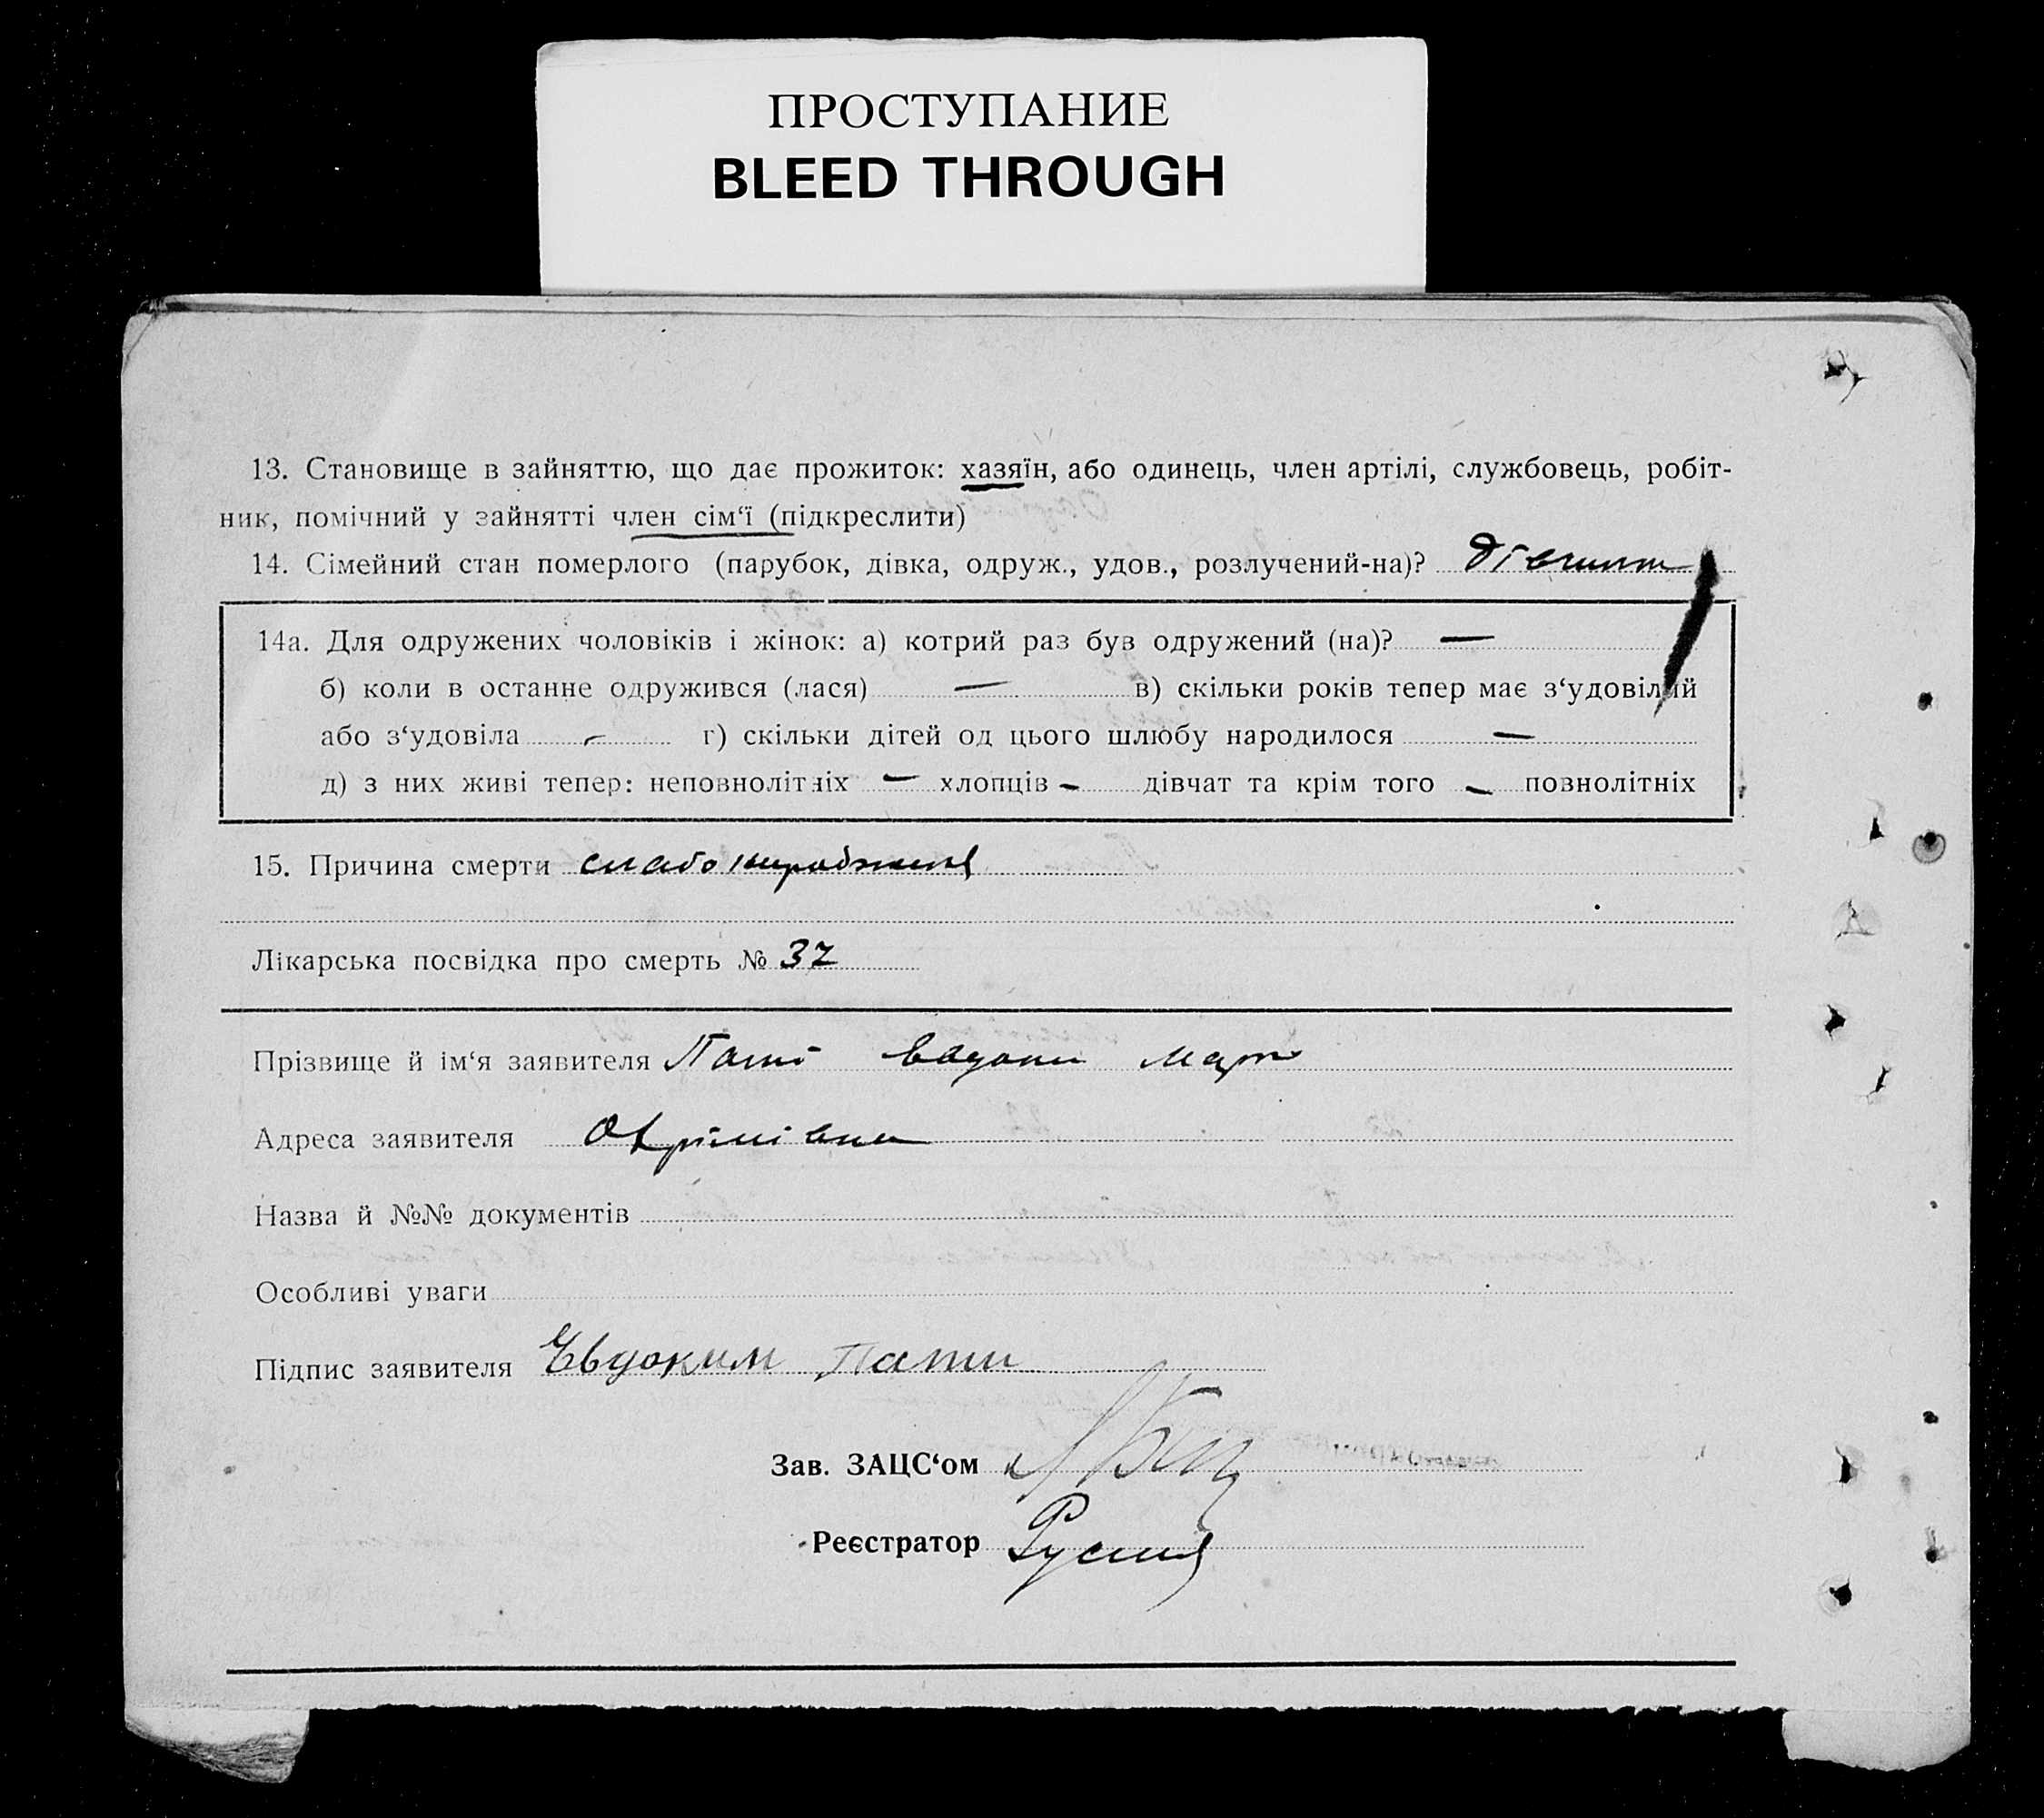 ПРОСТУПАНИЕ
BLEED THROUGH
13. Становище в зайняттю, що дає прожиток: хазяїн, або одинець, член артілі, службовець, робіт-
ник, помічний у зайнятті член сім‘ї (підкреслити)
14. Сімейний стан померлого (парубок, дівка, одруж., удов., розлучений-на)?
14а. Для одружених чоловіків і жінок: а) котрий раз був одружений (на)? —
б) коли в останне одружився (лася) — в) скільки років тепер має з‘удовілий
або з‘удовіла — г) скільки дітей од цього шлюбу народилося —
д) з них живі тепер: неповнолітніх — хлопців — дівчат та крім того — повнолітніх
15. Причина смерти
Лікарська посвідка про смерть № 37
Прізвище й ім‘я заявителя
Адреса заявителя
Назва й №№ документів
Особливі уваги
Підпис заявителя Євдоким Пати
Зав. ЗАЦС‘ом
Реєстратор